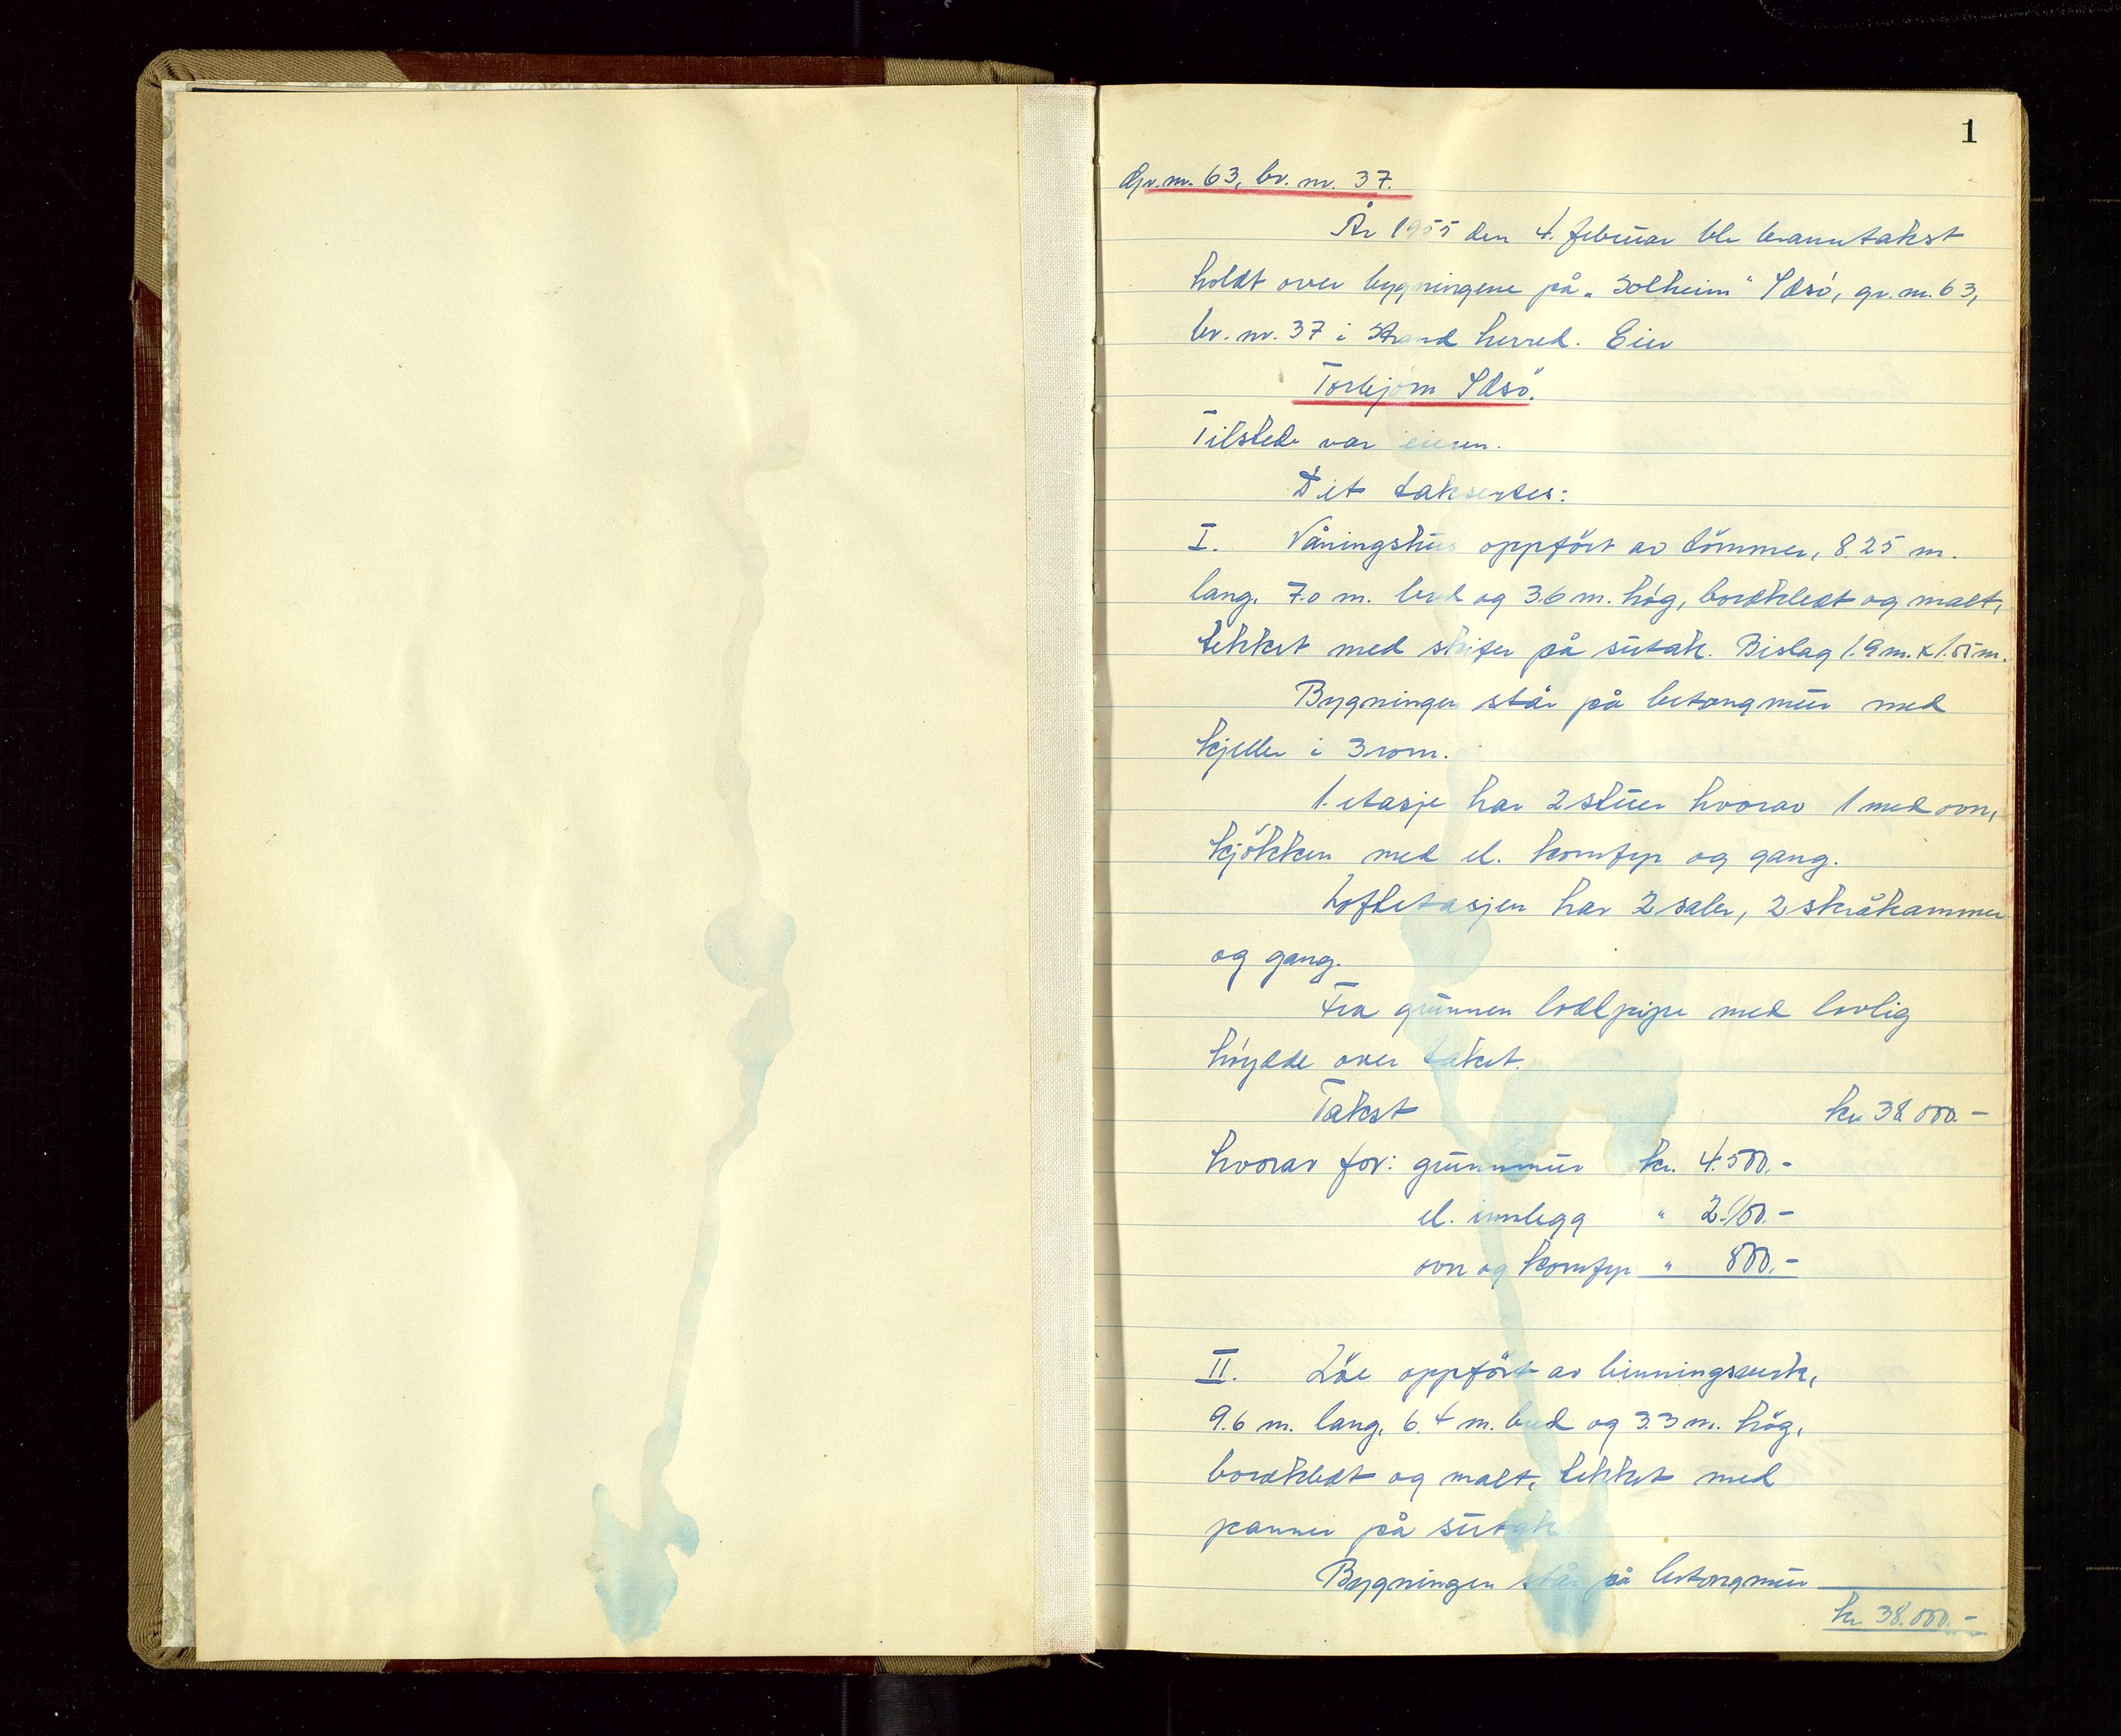 1
Gr. nr. 63, br. nr. 37.
År 1955 den 4. februar ble branntakst
holdt over bygningene på „Solheim" Idsö, gr. nr. 63,
br. nr. 37 i Strand herred. Eier
Torbjörn Idsö.
Tilstede var eieren.
Det taksertes:
I. Våningshus oppfört av tömmer, 8.25 m.
lang, 7.0 m. bred og 3.6 m. hög, bordkledt og malt,
tekket med skifer på sutak. Bislag 1.9 m. x 1.55 m.
Bygningen står på betongmur med
kjeller i 3 rom.
1. etasje har 2 stuer hvorav 1 med ovn,
kjökken med el. komfyr og gang.
Loftetasjen har 2 saler, 2 skråkammer
og gang.
Fra grunnen loddpipe med lovlig
höydde over taket.
Takst kr. 38.000.-
hvorav for: grunnmur kr. 4.500.-
el. innlegg " 2.160.-
ovn og komfyr " 800.-
II. Löe oppfört av binningsverk,
9.6 m. lang, 6.4 m. bred og 3.3 m. hög,
bordkledt og malt, tekket med
panner på sutak
Bygningen står på betongmur
kr. 38.000.-